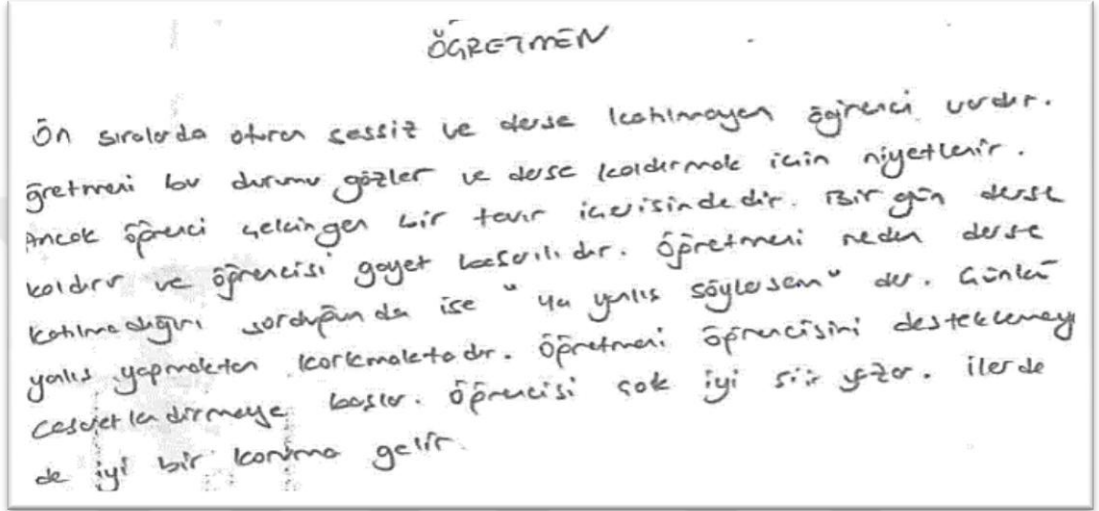 ÖĞRETMEN
Ön sıralarda oturan sessiz ve derse katılmayan öğrenci vardır.
ğretmeni bu durumu gözler ve derse kaldırmak için niyetlenir.
Ancak öğrenci çekingen bir tavır içerisindedir. Bir gün derse
kaldırır ve öğrencisi gayet başarılıdır. Öğretmeni neden derse
katılmadığını sorduğunda ise "ya yanlış söylersem" der. Çünkü
yanlış yapmaktan korkmaktadır. Öğretmeni öğrencisini desteklemeye
cesaretlendirmeye başlar. Öğrencisi çok iyi şiir yazar. İlerde
de iyi bir konuma gelir.